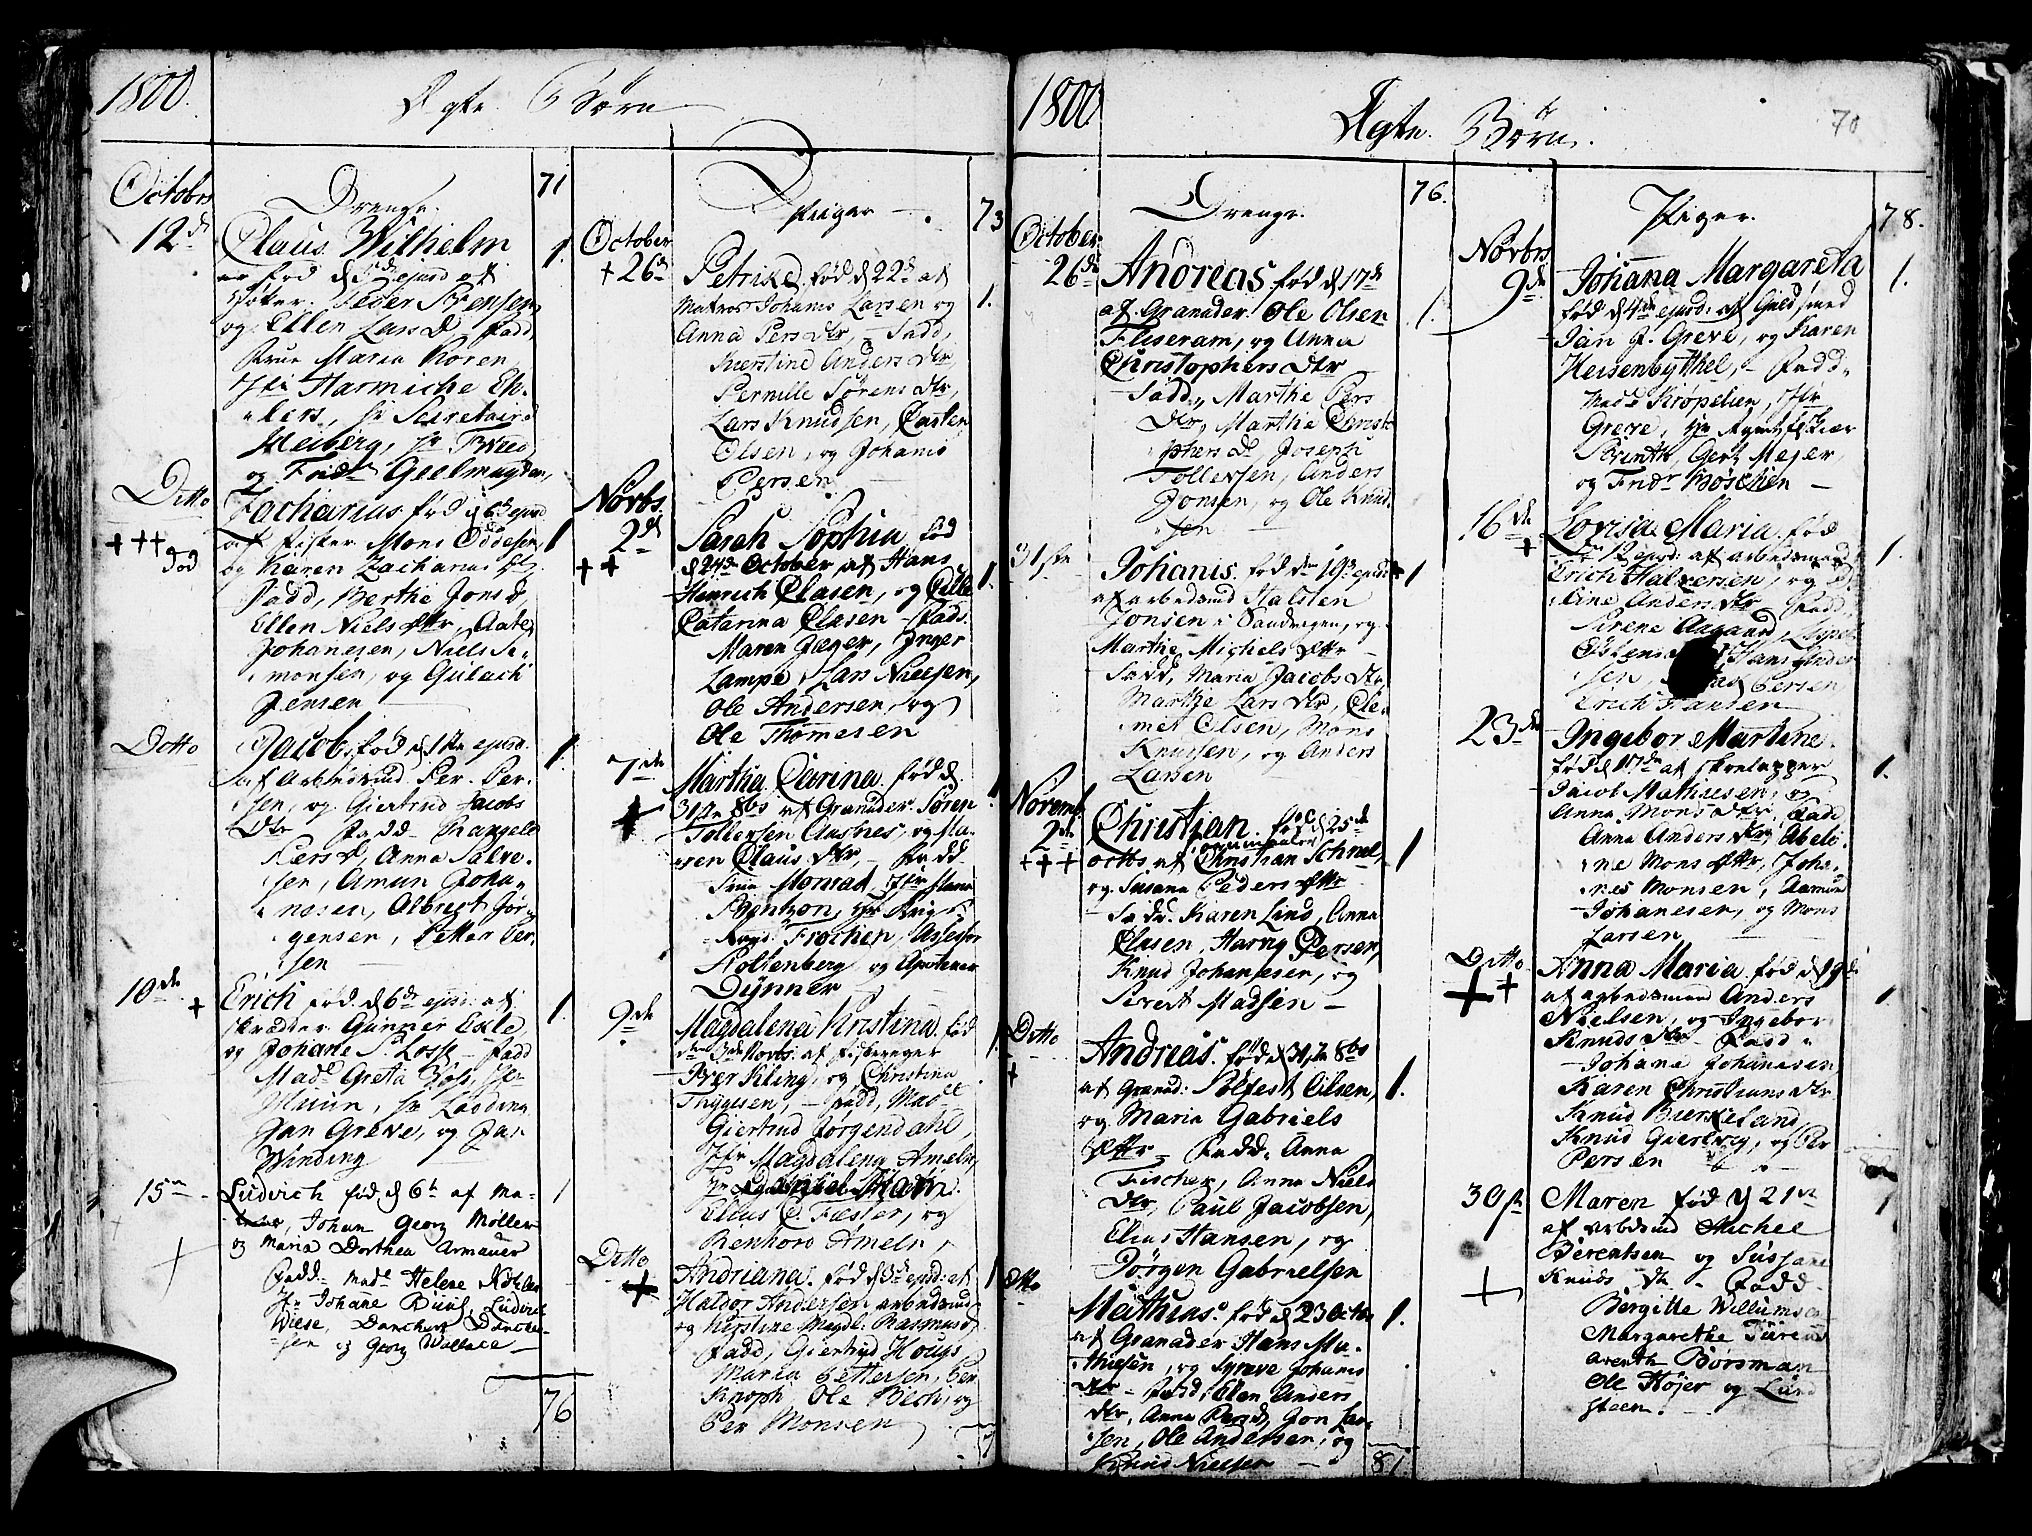 1800.
Ægte Børn
Octobrs
Drenge.
71
12 d
Claus Wilhelm
1.
er fød d 5 de ejusd af
og Ellen Lars D Fadd,
Frue Maria Koren,
Jfr Harmiche Eh-
lers, hr Secretaire
Heiberg, hr Fried
og Fridr Geelmuyden,
Ditto
+++
død
Zacharias fød d 6 te ejusd
1
af Fisker Mons Oddesen
og Karen Zacharias D
Fadd, Berthe Jons D,
Ellen Niels Dtr, Aate
Johanesen, Niels Si-
monsen, og Gulach
Jensen
Dotto
Jacob, fød d 1 ste ejusd.
1.
af Arbeidsmd. Per. Per-
sen, og Giertrud Jacobs
Dtr Fadd Rangele
Pers D, Anna Salve-
sen, Amun Joha-
nesen, Albrect Jør-
gensen, Petter Per-
sen
10 de
+
Erich fød d 6 de ejusd af
1.
skrædder Gunner Exle
og Johane S. Losse - Fadd
Mad. Greta Ross, Jfr
Muun, hr Lodding
Jan Greve, og Jan
Winding
15 n
Ludvich fød d 6 t af Ma-
1
Johan Georg Møller
og Maria Dorthea Armauer
Fadd. Made Helene
Jfr Johane Buus, Ludvich
Wiese, Danchert Daniel-
sen og Georg Wallace
76
Piiger
73
October
+26 d
Petriked, fød d 22 de af
1.
Matros Johanis Larsen og
Anna Pers Dtr, - Fadd,
Kierstine Anders Dtr
Pernille Sørens Dtr,
Lars Knudsen, Carsten
Olsen, og Johanis
Persen
Novbs
2 d
++
Sarah Sophia, fød
1.
d 24 de October, af Hans
Heinrich Clasen, og Cille
Catarina Clasen Fadd.
Maren Jæger, Inger
Lampe, Lars Nielsen,
Ole Andersen, og
Ole Thomesen
7 de
+
Martha Carina fød d
1
31 ste 8bs af Granader Søren
Tollefsen Aastnes, og Ma-
ren Claus Dtr, - Fadd
Frue Monrad, Jfr
Frochen, Assessor
Koltenberg og Apoteker
Dynner
9 de
Magdalena Kristina fød
1.
den 3 de Novbs. af Fisteneger
Iver Kling, og Christina
Thygesen, - Fadd, Made
Giertrud Jørgendahl,
Jfr Magdalena Ameln
Elias C. Fæster, og
Renhord Ameln,
Ditto
+
Andriana. fød d 5 de ejusd: af
1
Haldor Andersen arbedsmd
og Kirstine Magdl: Rasmusd
Fadd, Giertrud Hougs,
Maria Pettersen, Per
Knoph, Ole Bech, og
Per Monsen
1800
Ægte Børn.
70
Drenge.
76.
October
26 de
Andreas. fød d 17 de
1.
af Granader Ole Olsen
Fliseram, og Anna
Christophers Dtr
Fadd., Marthe Pers
Dtr, Marthe Christo
phers D, Joseph
Tollefsen, Anders
Jonsen, og Ole Knud-
sen
31 ste
Johanis. fød den 19 de ejusd
1
af arbedsmd Halsten
Jonsen i Sandvigen, og
Marthe Michels Dtr
Fadd, Maria Jacobs Dtr
Marthe Lars Dtr, Cle-
met Olsen, Mons
Knudsen, og Anders
Larsen
Novemb.
2 de
+++
Christian. fød d 25 de
1
octbs af Christian Schnel,
og Susana Peders Dtr
Fadd. Karen Lind, Anna
Clasen, Harny Persen,
Knud Johanesen, og
Sivert Madsen -
Ditto
+
Andreas. fød d 31 ste 8bs
1.
af Granad: Solfest Olsen,
og Maria Gabriels
Dtr - Fadd. Anna
Fischer, Anna Niels
Dtr, Paul Jacobsen,
Elias Hansen, og
Jørgen Gabrielsen
dtto
Mathias. fød d 23 Octbr
1.
af Granader Hans Ma-
thiesen, og Syneve Johanis
Dtr - Fadd, Elen Anders
Dtr, Anna Pers D, Jon Lar-
sen, Ole Andersen, og
Knud Nielsen
81
Piger.
78.
Novbrs
9 de
Johana Margareta
1.
fød d 4 de ejusd: af Guldsmed
Jan J. Greve, og Karen
Heisenbytthel, - Fadd.
Made Krøpelien, Jfr
Greve,
Brinth, Gert Mejer,
og Fridr Bøschen -
16 de
+
Lovisa Maria. fød
1.
12 ejusd. af arbedsmand
Erich Halversen, og
line Anders Dtr Fadd,
Sirene Aagaard,
Hans Ander
sen, Persen
Erich Hansen
23 de
Ingebor Martine.
1.
fød d 17 de af Skoelapper
Jacob Mathiesen, og
Anna Mons Dtr, Fadd
Anna Anders Dtr, Abeli-
ne Mons Dtr, Joha-
nes Monsen, Aamun
Johanesen, og Mons
Larsen
Ditto
++
Anna Maria fød d 19 de
1.
af arbedsmand Anders
Nielsen, og Ingebor
Knuds Dtr - Fadd.
Johana Johanesen
Karen Christians Dtr
Knud Bierkeland,
Knud Gierstvig, og Per
Persen
30 te
+
Maren fød d 21 de
1
af arbdsmd Michel
Berentsen og Susane
Knuds Dr - Fadd
Bergitte Willumsen
Margarethe
Arenth Børsman
Ole Højer og Lund
steen.